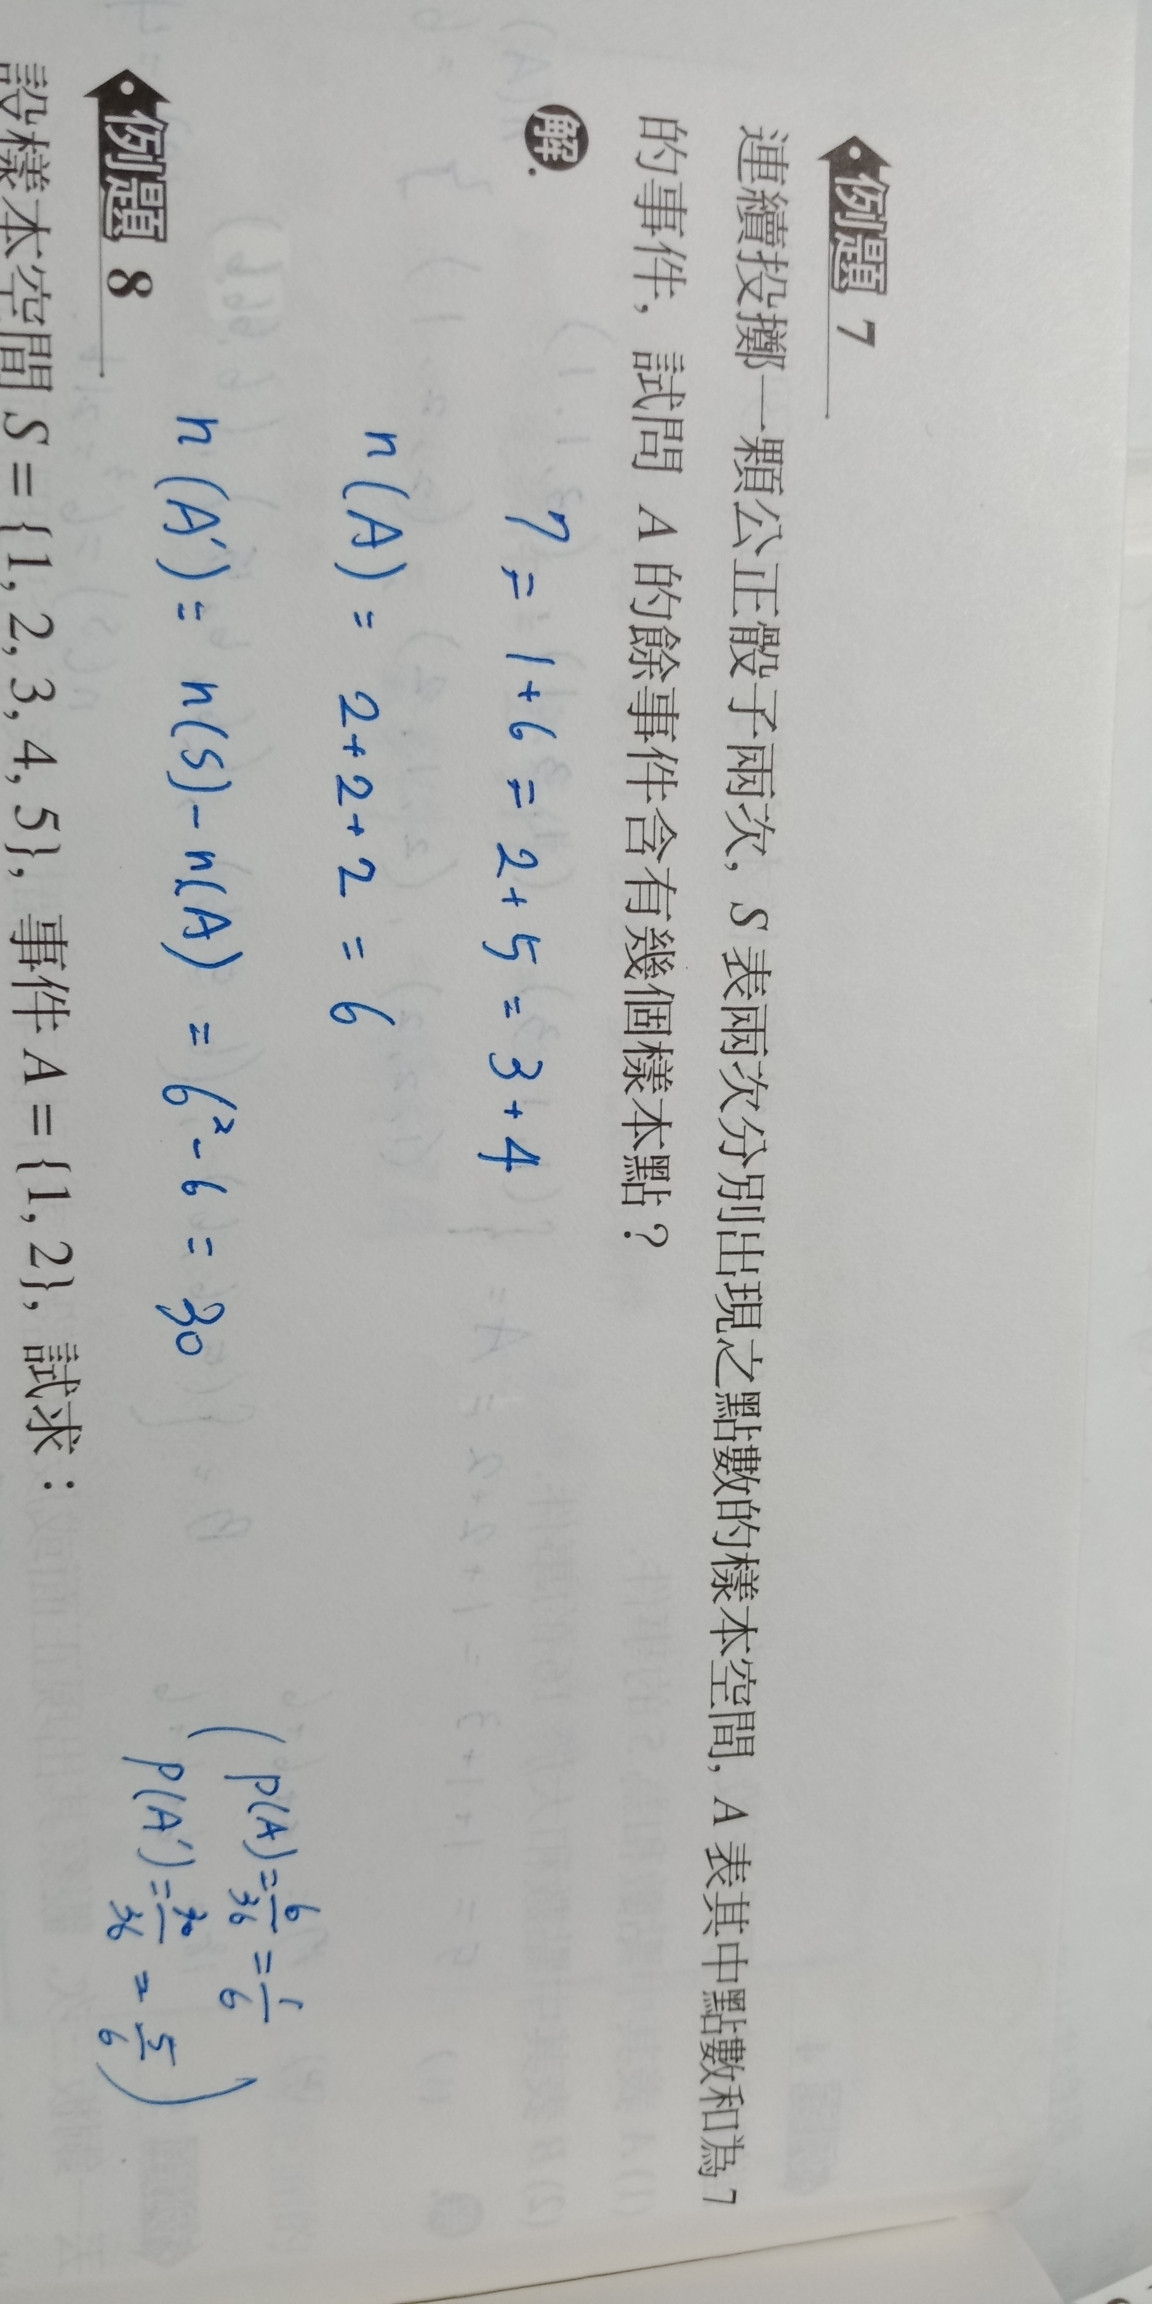 例題 7
連續投擲一顆公正骰子兩次, S 表兩次分別出現之點數的樣本空間, A 表其中點數和為 7
的事件, 試問 A 的餘事件含有幾個樣本點?
解.
7 = 1+6 = 2+5 = 3+4
n(A) = 2+2+2 = 6
n(A') = n(S) - n(A) = 6² - 6 = 30
(P(A) = 6/36 = 1/6
P(A') = 30/36 = 5/6)
例題 8
設樣本空間 S = {1, 2, 3, 4, 5}, 事件 A = {1, 2}, 試求: